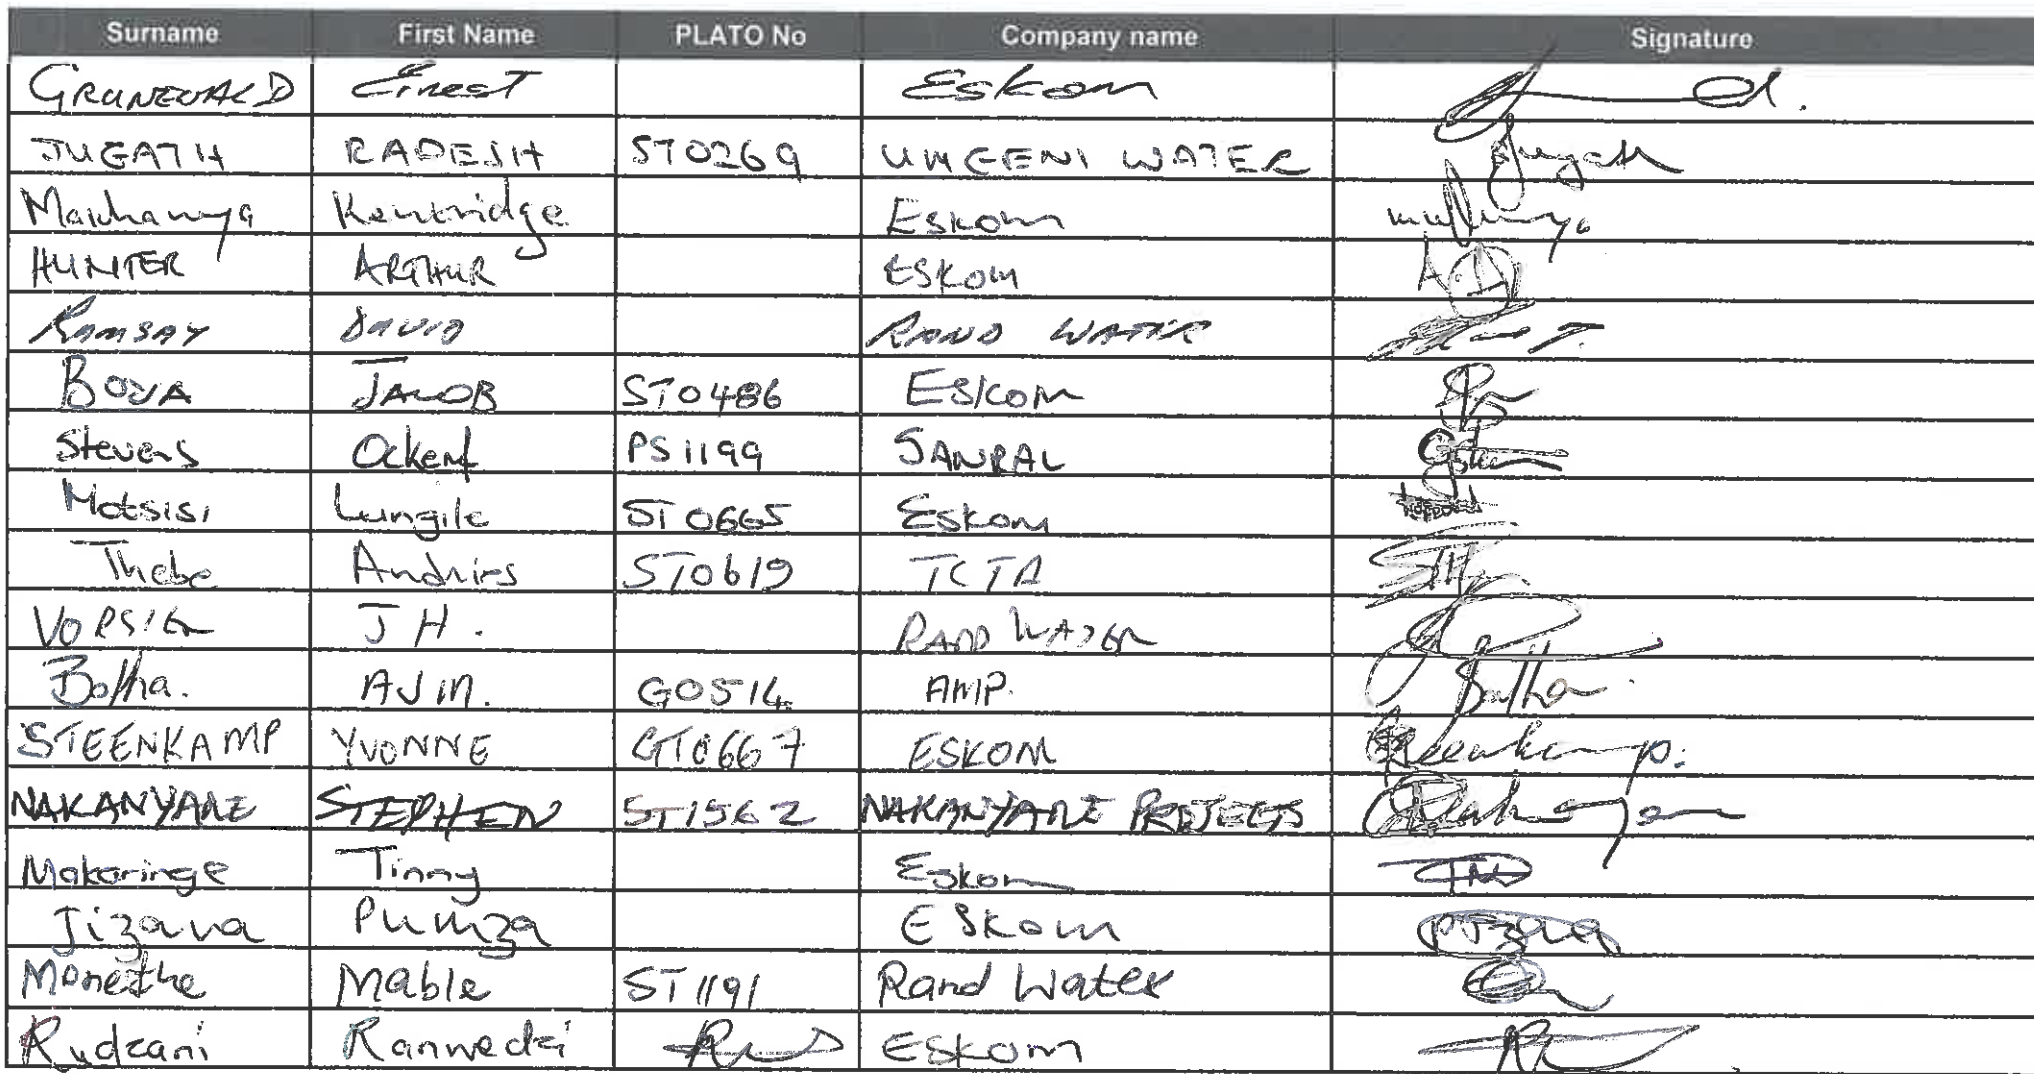 Surname First Name PLATO No Company name Signature
GRUNEWALD Ernest Eskom
JUGATH RADESH ST0269 UMGENI WATER Jugath
Makhanya Kentridge Eskom
HUNTER ARTHUR ESKOM
RAMSAY DAVID RAND WATER
BOOYA JACOB ST0486 ESKOM
Stevens Ockert PS1199 SANRAL
Motsisi Lungile ST0665 Eskom
Thebe Andries ST0619 TCTA
VORSTER J H. RAND WATER
Botha. AJM. G0514 AMP. Botha
STEENKAMP YVONNE GT0667 ESKOM Steenkamp.
NAKANYANE STEPHEN ST1562 NAKANYANE PROJECTS
Mokoringe Tinny Eskom
Jizana Pumza ESkom
Monethe Mable ST1191 Rand Water
Rudzani Ranwedzi Eskom